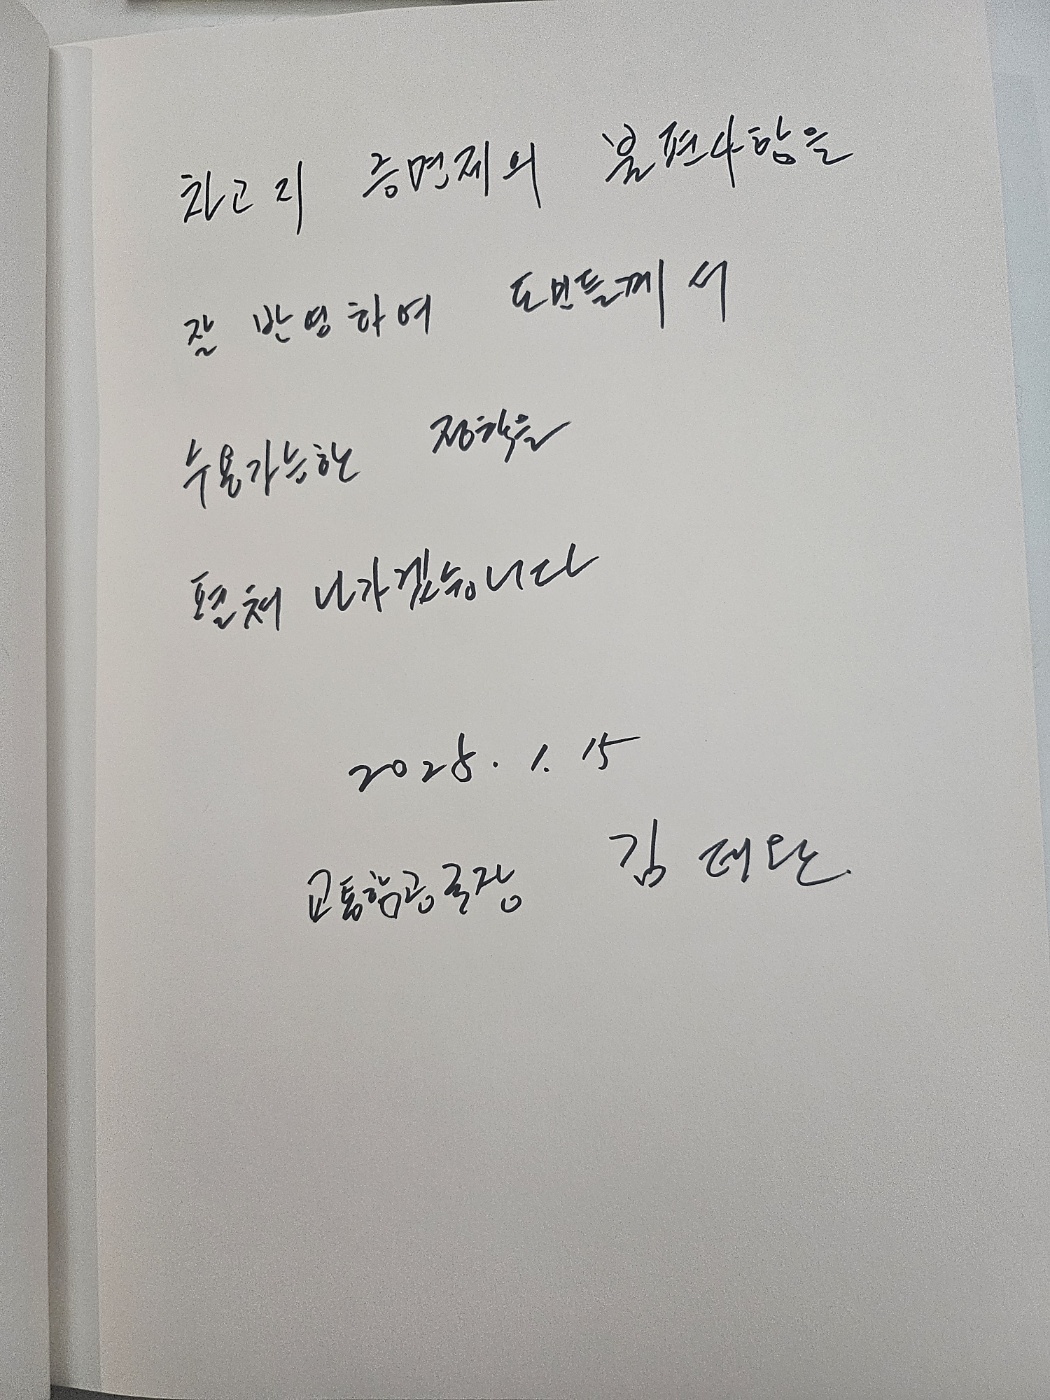 차고지 증명제의 불편사항을
잘 반영하여 도민들께서
수용가능한 정책을
펼쳐 나가겠습니다
2025. 1. 15
교통항공국장 김태완.